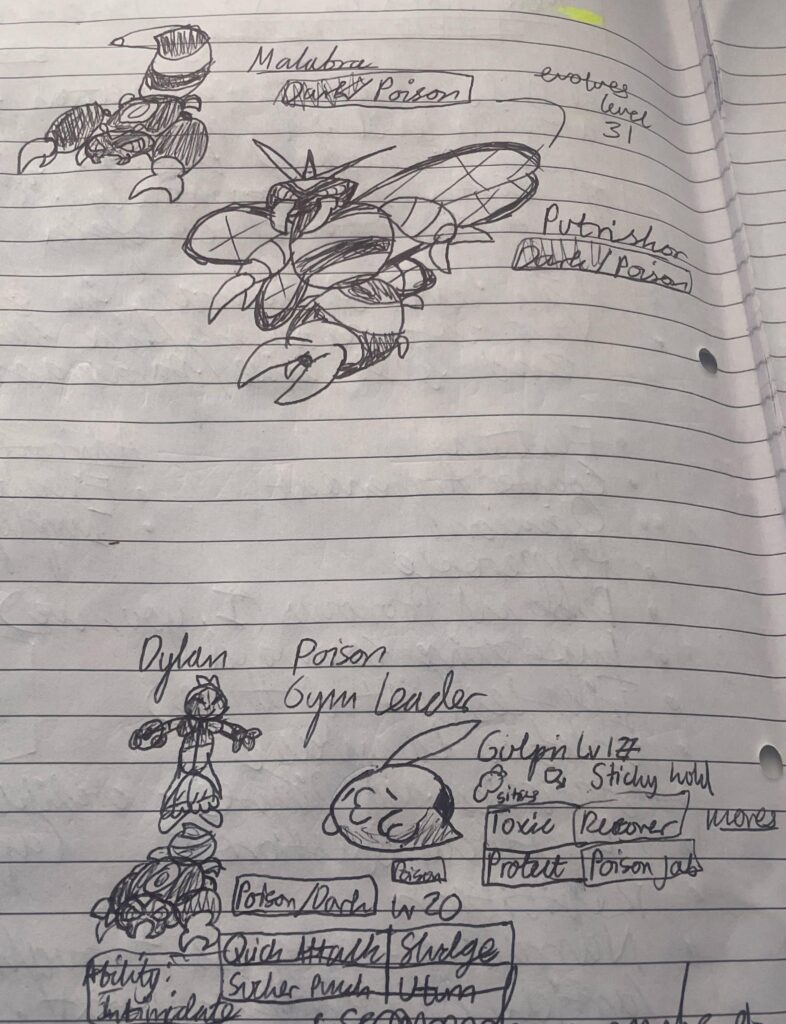 Malabra
Dark / Poison
evolves
level
31
Putrishor
Dark / Poison
Dylan
Poison
Gym Leader
Gulpin Lv 17
Sticky hold
sitrus
Toxic
Recover
moves
Protect
Poison jab
Poison
Poison/Dark
Lv 20
Quick Attack
Sludge
Sucker Punch
Uturn
Ability:
Intimidate